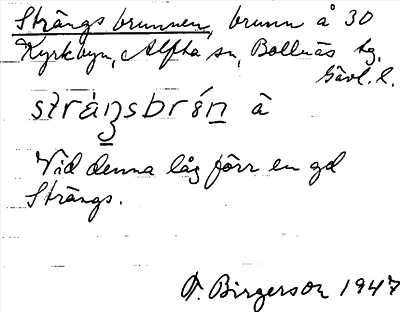 Strängsbrunnen, brunn å 30
Kyrkbyn, Alfta sn, Bollnäs tg,
Gävl. l.
å
Vid denna låg förr en gd
Strängs.
F. Birgerson 1947